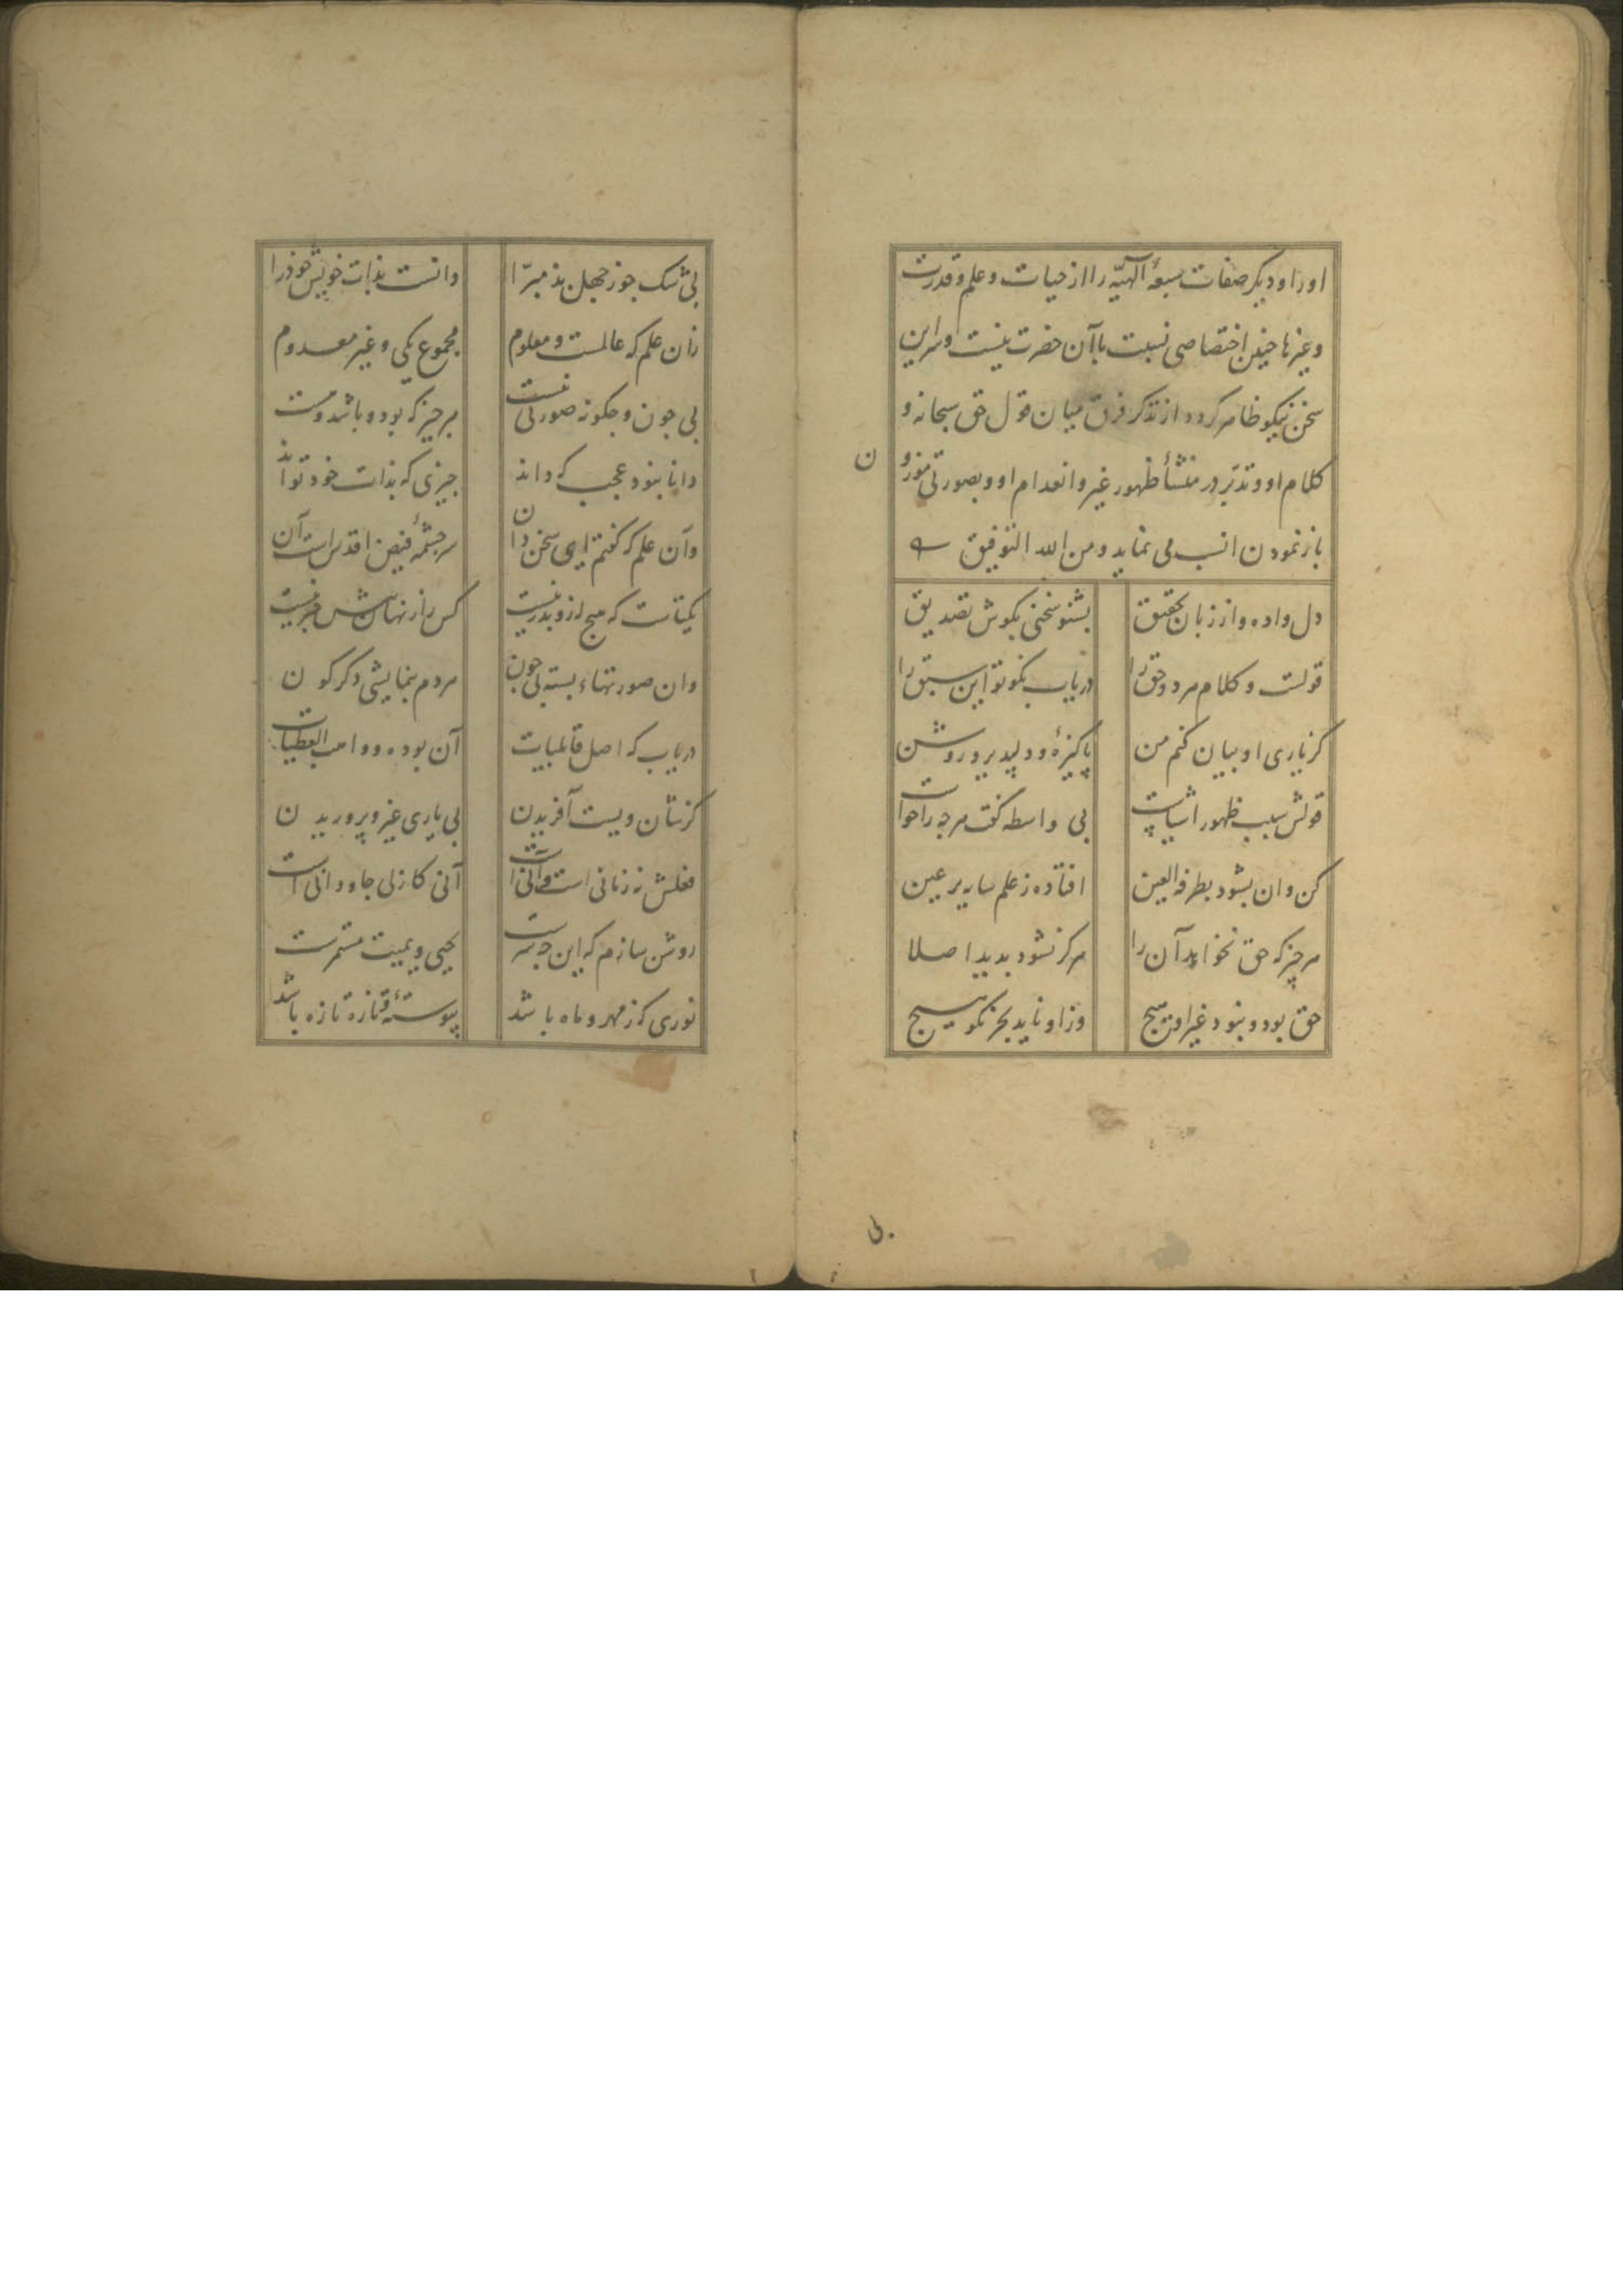 اورا و دیکر صفات سبعهٔ الٓهیّه را از حیات و علم و قدرت
و غیرها چنین اختصاصی نسبت باآن حضرت نیست و سر این
سخن نیکو ظاهر کردد از تذکر فرق میان قول حق سبحانه و
کلام او و تدبّر در منشأ ظهور غیر و انعدام او و بصورتی موزو
ن
باز نمودن انسب می نماید و من الله التوفیق
دل داده و از زبان تحقیق بشنو سخنی بکوش تصدیق
قولست و کلام مرد و حق را دریاب نکو تو این سبق را
کز یاری او بیان کنم من پاکیزهٔ و دلپذیر و روشن
قولش سبب ظهور اشیاست بی واسطه کفت هرچه را خواست
کن دان بشود بطرفه العین افتاده ز علم سایه بر عین
هر چیز که حق نخواهد آن را هرکز نشود بدید اصلا
حق بود و نبود غیر او هیچ وز او ناید بجز نکو هیچ
بی
بی شک جو ز جهل بذ مبرّا دانست بذات خویش خوذ را
زان علم که عالمست و معلوم مجموع یکی و غیر معدوم
بی جون و جکونه صورتی نیست هر چیز که بود و باشد و هست
دانا نبود عجب که داند جیزی که بذات خود تواند
وآن علم که کفتم ای سخن دان سرجشمهٔ فیض اقدس است آن
یکتاست که هیچ ازو بدر نیست کس را ز نهانش خبر نیست
وان صورتهاء بسته بی جون هر دم بنمایشی دکرکون
دریاب که اصل قابلیات آن بوده و واهب العطیات
کر شان ویست آفریدن بی یاری غیر و پروریدن
فعلش نه زمانی است و آنی است آنی کازلی جاودانی است
روشن سازم که این جه سرست یحیی و یمیت مستمرست
نوری که ز مهر و ماه باشد پیوسته تازه تازه باشد